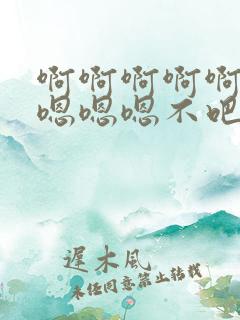 啊啊啊啊啊
嗯嗯嗯不吧
遲木風
未经同意禁止转载